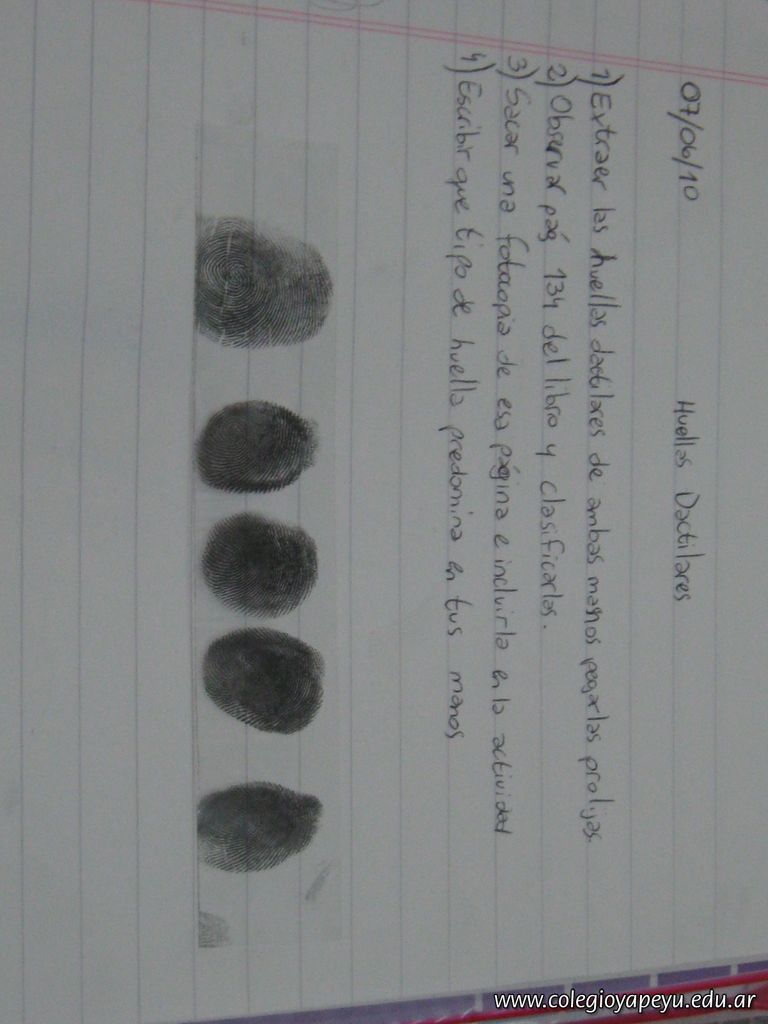 07/06/10 Huellas Dactilares
1) Extraer las huellas dactilares de ambas manos pegarlas prolijas.
2) Observar pág 134 del libro y clasificarlas.
3) Sacar una fotocopia de esa página e incluirla en la actividad
4) Escribir que tipo de huella predomina en tus manos
www.colegioyapeyu.edu.ar